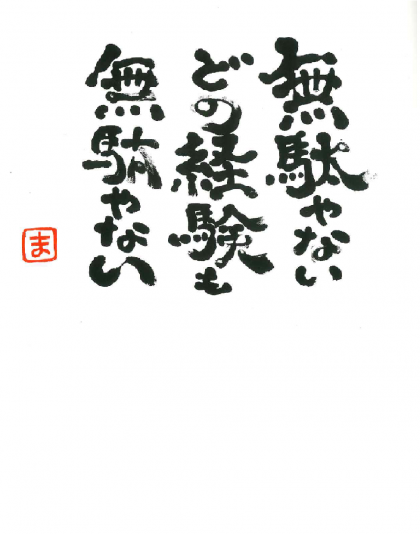 無駄やない
どの経験も
無駄やない
ま